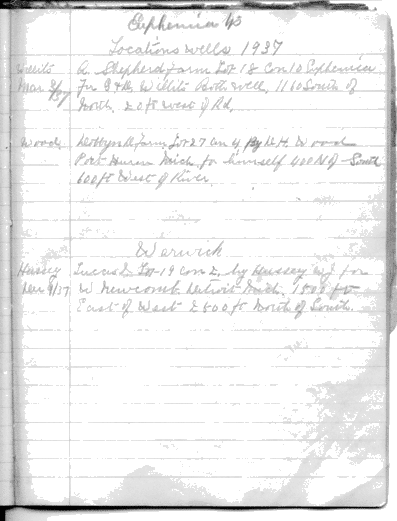 Euphemia 43
Locations wells 1937
Willits A. Shepherd farm Lot 18 Con 10 Euphemia
Mar 3/37 for Willits Bothwell, 1160 South of
North. 20 ft West of Rd.
Wood farm Lot 27 Con 4 by H. Wood
Port Huron Mich for himself 400 N of South
600 ft West of River
Warwick
Hussey Lucas Lot 19 Con 2, by Hussey for
Dec 9/37 W Newcomb Detroit Mich. 1800 ft
East of West 2800 ft North of South.